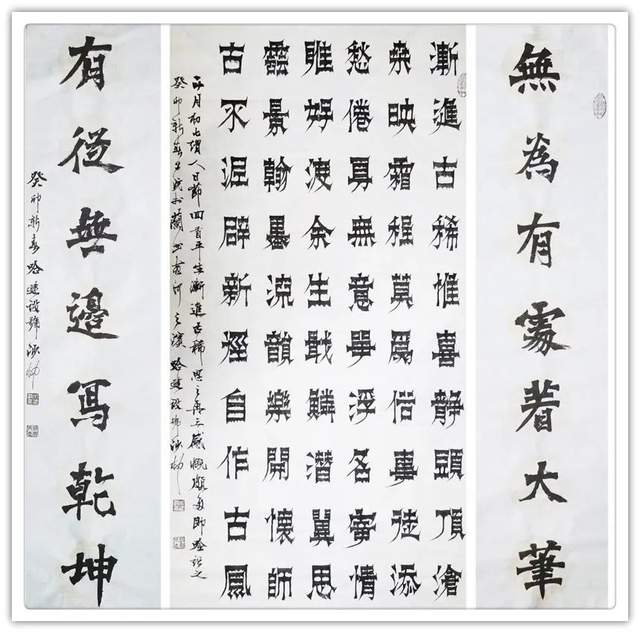 無為有處着大筆
漸進古稀惟喜靜頭頂滄
桑映霜程莫爲俗事徒添
愁倦具無意爭浮名寧情
唯好渡余生戢鱗潛翼思
靈景翰墨流韻樂開懷師
古不泥辟新徑自作古風
正月初七人日節回首平生漸進古稀思之再三感慨頗多即吟
癸卯新春
有從無邊寫乾坤
癸卯新春